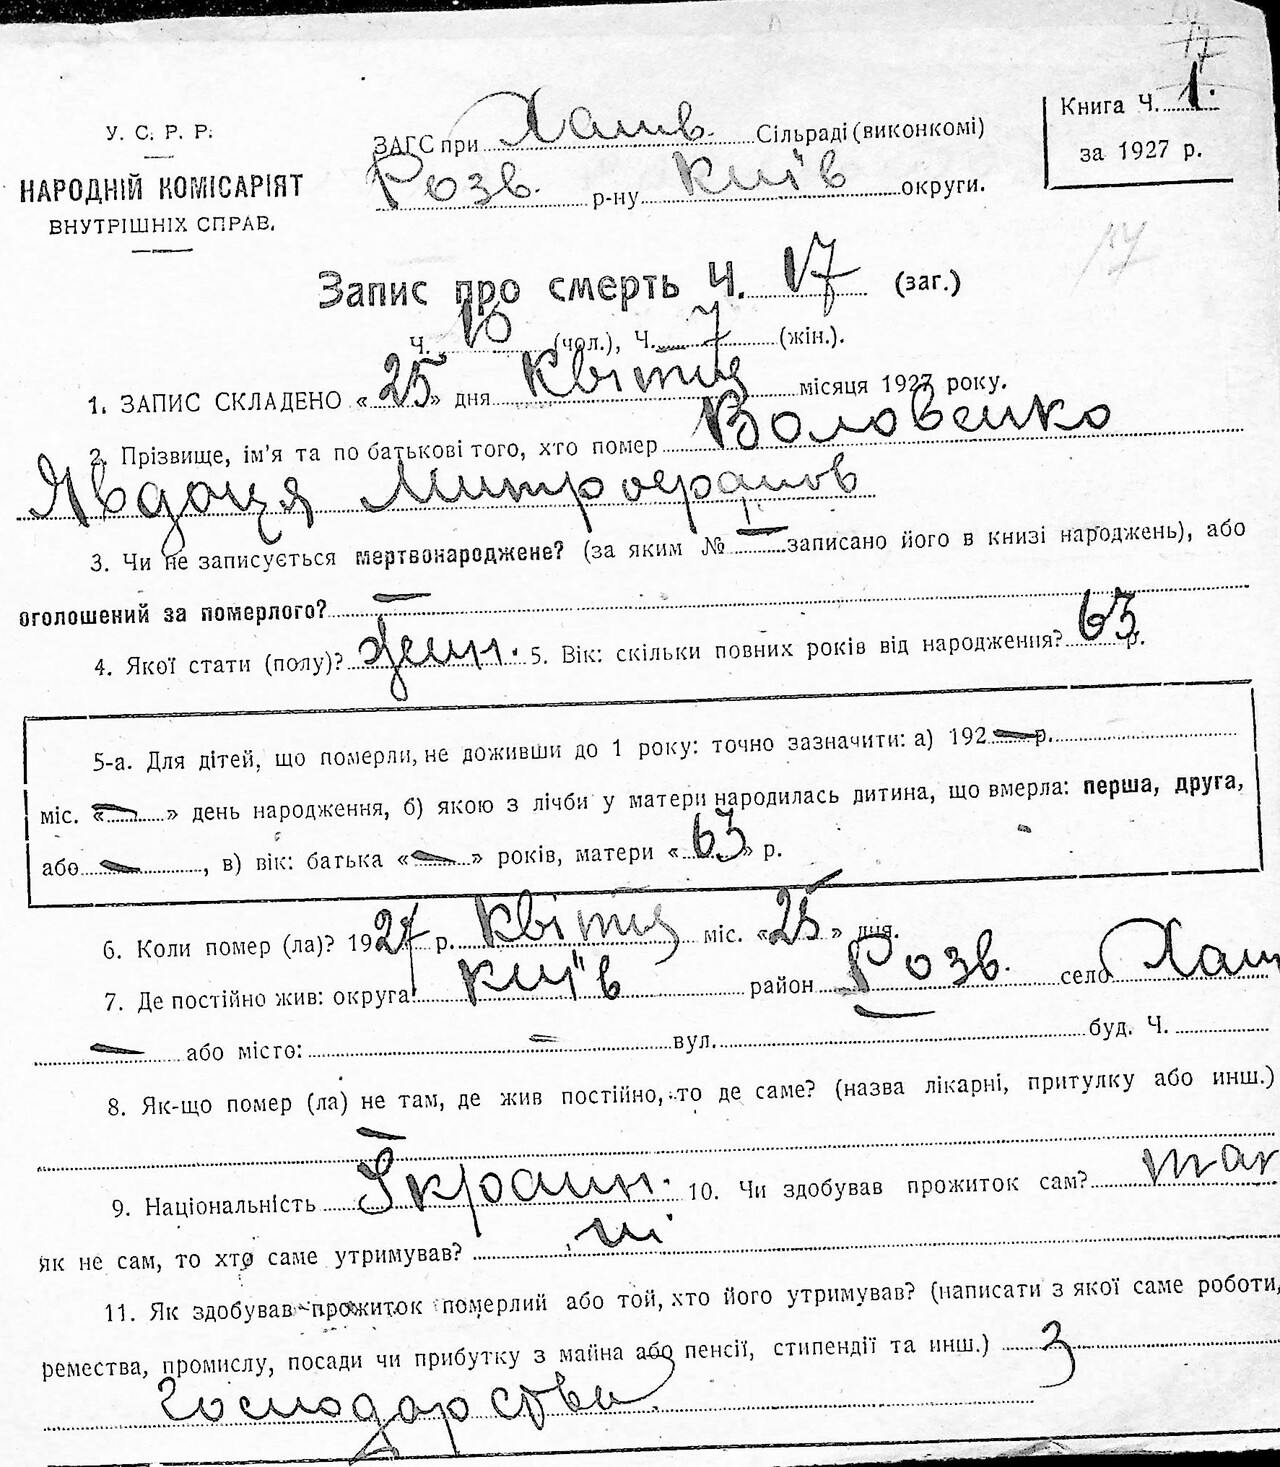 17
У. С. Р. Р.
НАРОДНІЙ КОМІСАРІЯТ
ВНУТРІШНІХ СПРАВ.
ЗАГС при Хаив. Сільраді (виконкомі)
Розв. р-ну Київ округи.
Книга Ч. 1.
за 1927 р.
17
Запис про смерть Ч. 17 (заг.)
Ч. 10 (чол.), Ч. 7 (жін.).
1. ЗАПИС СКЛАДЕНО «25» дня Квітня місяця 1927 року.
2. Прізвище, ім'я та по батькові того, хто помер Воловенко
Явдоця Митрофанов
3. Чи не записується мертвонароджене? (за яким № — записано його в книзі народжень), або
оголошений за померлого? —
4. Якої стати (полу)? жин. 5. Вік: скільки повних років від народження? 63 р.
5-а. Для дітей, що померли, не доживши до 1 року: точно зазначити: а) 192 — р.
міс. «—» день народження, б) якою з лічби у матери народилась дитина, що вмерла: перша, друга,
або —, в) вік: батька «—» років, матери «63» р.
6. Коли помер (ла)? 1927 р. Квітня міс. «25» дня.
7. Де постійно жив: округа Київ район Розв. село Хаи
— або місто: — вул. — буд. Ч.
8. Як-що помер (ла) не там, де жив постійно, то де саме? (назва лікарні, притулку або инш.)
—
9. Національність Украаин. 10. Чи здобував прожиток сам? так
як не сам, то хто саме утримував? ні
11. Як здобував прожиток померлий або той, хто його утримував? (написати з якої саме роботи,
ремества, промислу, посади чи прибутку з майна або пенсії, стипендії та инш.) З
Господарства.